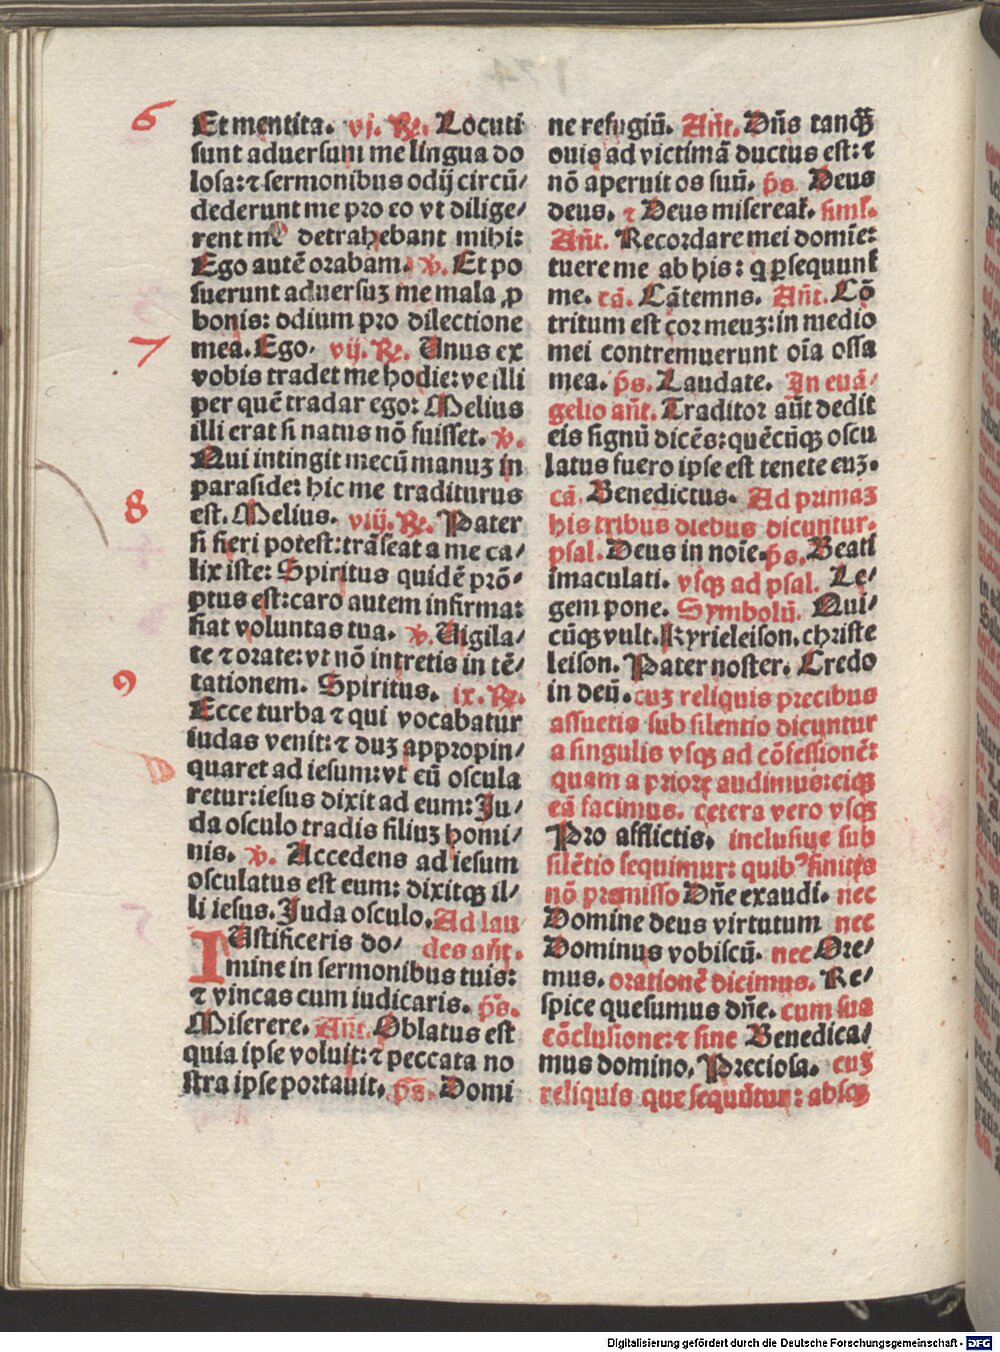 174
6
Et mentita. vj. ℟. Locuti
sunt aduersum me lingua do
losa: ⁊ sermonibus odij circū/
dederunt me pro eo vt dilige/
rent me detrahebant mihi:
Ego autē orabam. ℣. Et po
suerunt aduersuꝫ me mala ꝓ
bonis: odium pro dilectione
7
mea. Ego. vij. ℟. Unus ex
vobis tradet me hodie: ve illi
per quē tradar ego: Melius
illi erat si natus nō fuisset. ℣.
Qui intingit mecū manuꝫ in
paraside: hic me traditurus
8
est. Melius. viij. ℟. Pater
si fieri potest: trāseat a me ca/
lix iste: Spiritus quidē prō/
ptus est: caro autem infirma:
fiat voluntas tua. ℣. Uigila/
te ⁊ orate: vt nō intretis in tē/
9
tationem. Spiritus. ix. ℟.
Ecce turba ⁊ qui vocabatur
iudas venit: ⁊ duꝫ appropin/
quaret ad iesum: vt eū oscula
retur: iesus dixit ad eum: Ju/
da osculo tradis filiuꝫ homi/
nis. ℣. Accedens ad iesum
osculatus est eum: dixitqꝫ il/
li iesus. Juda osculo. Ad lau
IUstificeris do/ des an̄t.
mine in sermonibus tuis:
⁊ vincas cum iudicaris. p̄s.
Miserere. An̄t. Oblatus est
quia ipse voluit: ⁊ peccata no
stra ipse portauit. p̄s. Domi
ne refugiū. An̄t. Dn̄s tanqꝫ
ouis ad victimā ductus est: ⁊
nō aperuit os suū. p̄s. Deus
deus. ⁊ Deus misereat̄. siml̄.
An̄t. Recordare mei domīe:
tuere me ab his: q ꝑsequunt̄
me. cā. Cātemns. An̄t. Cō
tritum est cor meuꝫ: in medio
mei contremuerunt oīa ossa
mea. p̄s. Laudate. In euā/
gelio an̄t. Traditor aūt dedit
eis signū dicēs: quēcūqꝫ oscu
latus fuero ipse est tenete euꝫ.
cā. Benedictus. Ad primaꝫ
his tribus diebus dicuntur.
psal. Deus in noīe. p̄s. Beati
imaculati. vsqꝫ ad psal. Le/
gem pone. Symbolū. Qui/
cūqꝫ vult. Kyrieleison. christe
leison. Pater noster. Credo
in deū. cuꝫ reliquis precibus
assuetis sub silentio dicuntur
a singulis vsqꝫ ad cōfessionē:
quam a priore audimus: eiqꝫ
eā facimus. cetera vero vsqꝫ
Pro afflictis. inclusiue sub
silētio sequimur: quibꝰ finitis
nō premisso Dn̄e exaudi. nec
Domine deus virtutum nec
Dominus vobiscū. nec Ore/
mus. orationē dicimus. Re/
spice quesumus dn̄e. cum sua
cōclusione: ⁊ sine Benedica/
mus domino. Preciosa. cuꝫ
reliquis que sequūtur: absqꝫ
Digitalisierung gefördert durch die Deutsche Forschungsgemeinschaft - DFG